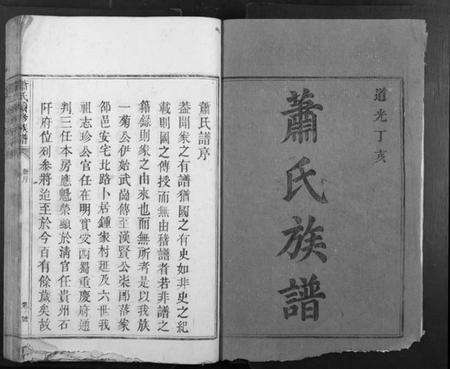 道光丁亥
蕭氏族譜
蕭氏譜序
蓋聞家之有譜猶國之有史如非史之紀
載則國之傳授而無由稽譜者若非譜之
籍錄則家之由來也而無所考是以我族
一菊公伊始武崗傳至漢賢公柒團落業
邵邑安宅北路卜居鍾家村逛及六世我
祖志珍公官任在明實受西蜀重慶府通
判三任本房應魁榮顯於淸官任貴州石
阡府位列參將迨至於今百有餘歲矣故
蕭氏續修族譜